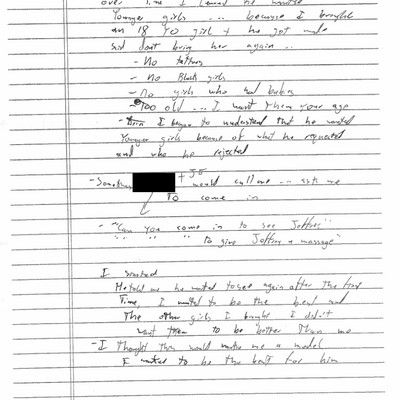 over time I learned he wanted
Younger girls .... because I brought
an 18 YO girl + he got mad
said don't bring her again ..
- No tattoos
- No Black girls
- No girls who had
- Too old ... I want them your age
- I began to understand that he wanted
Younger girls because of what he requested
and who he rejected
- Sometimes + JE would call me ... ask me
To come in
- "Can you come in to see Jeffrey"
" " " " To give Jeffrey a massage"
I
He told me he wanted to see again after the first
Time, I wanted to be the best and
The other girls I brought I didn't
want them to be better than me
- I thought this would make me a model
I wanted to be the best for him